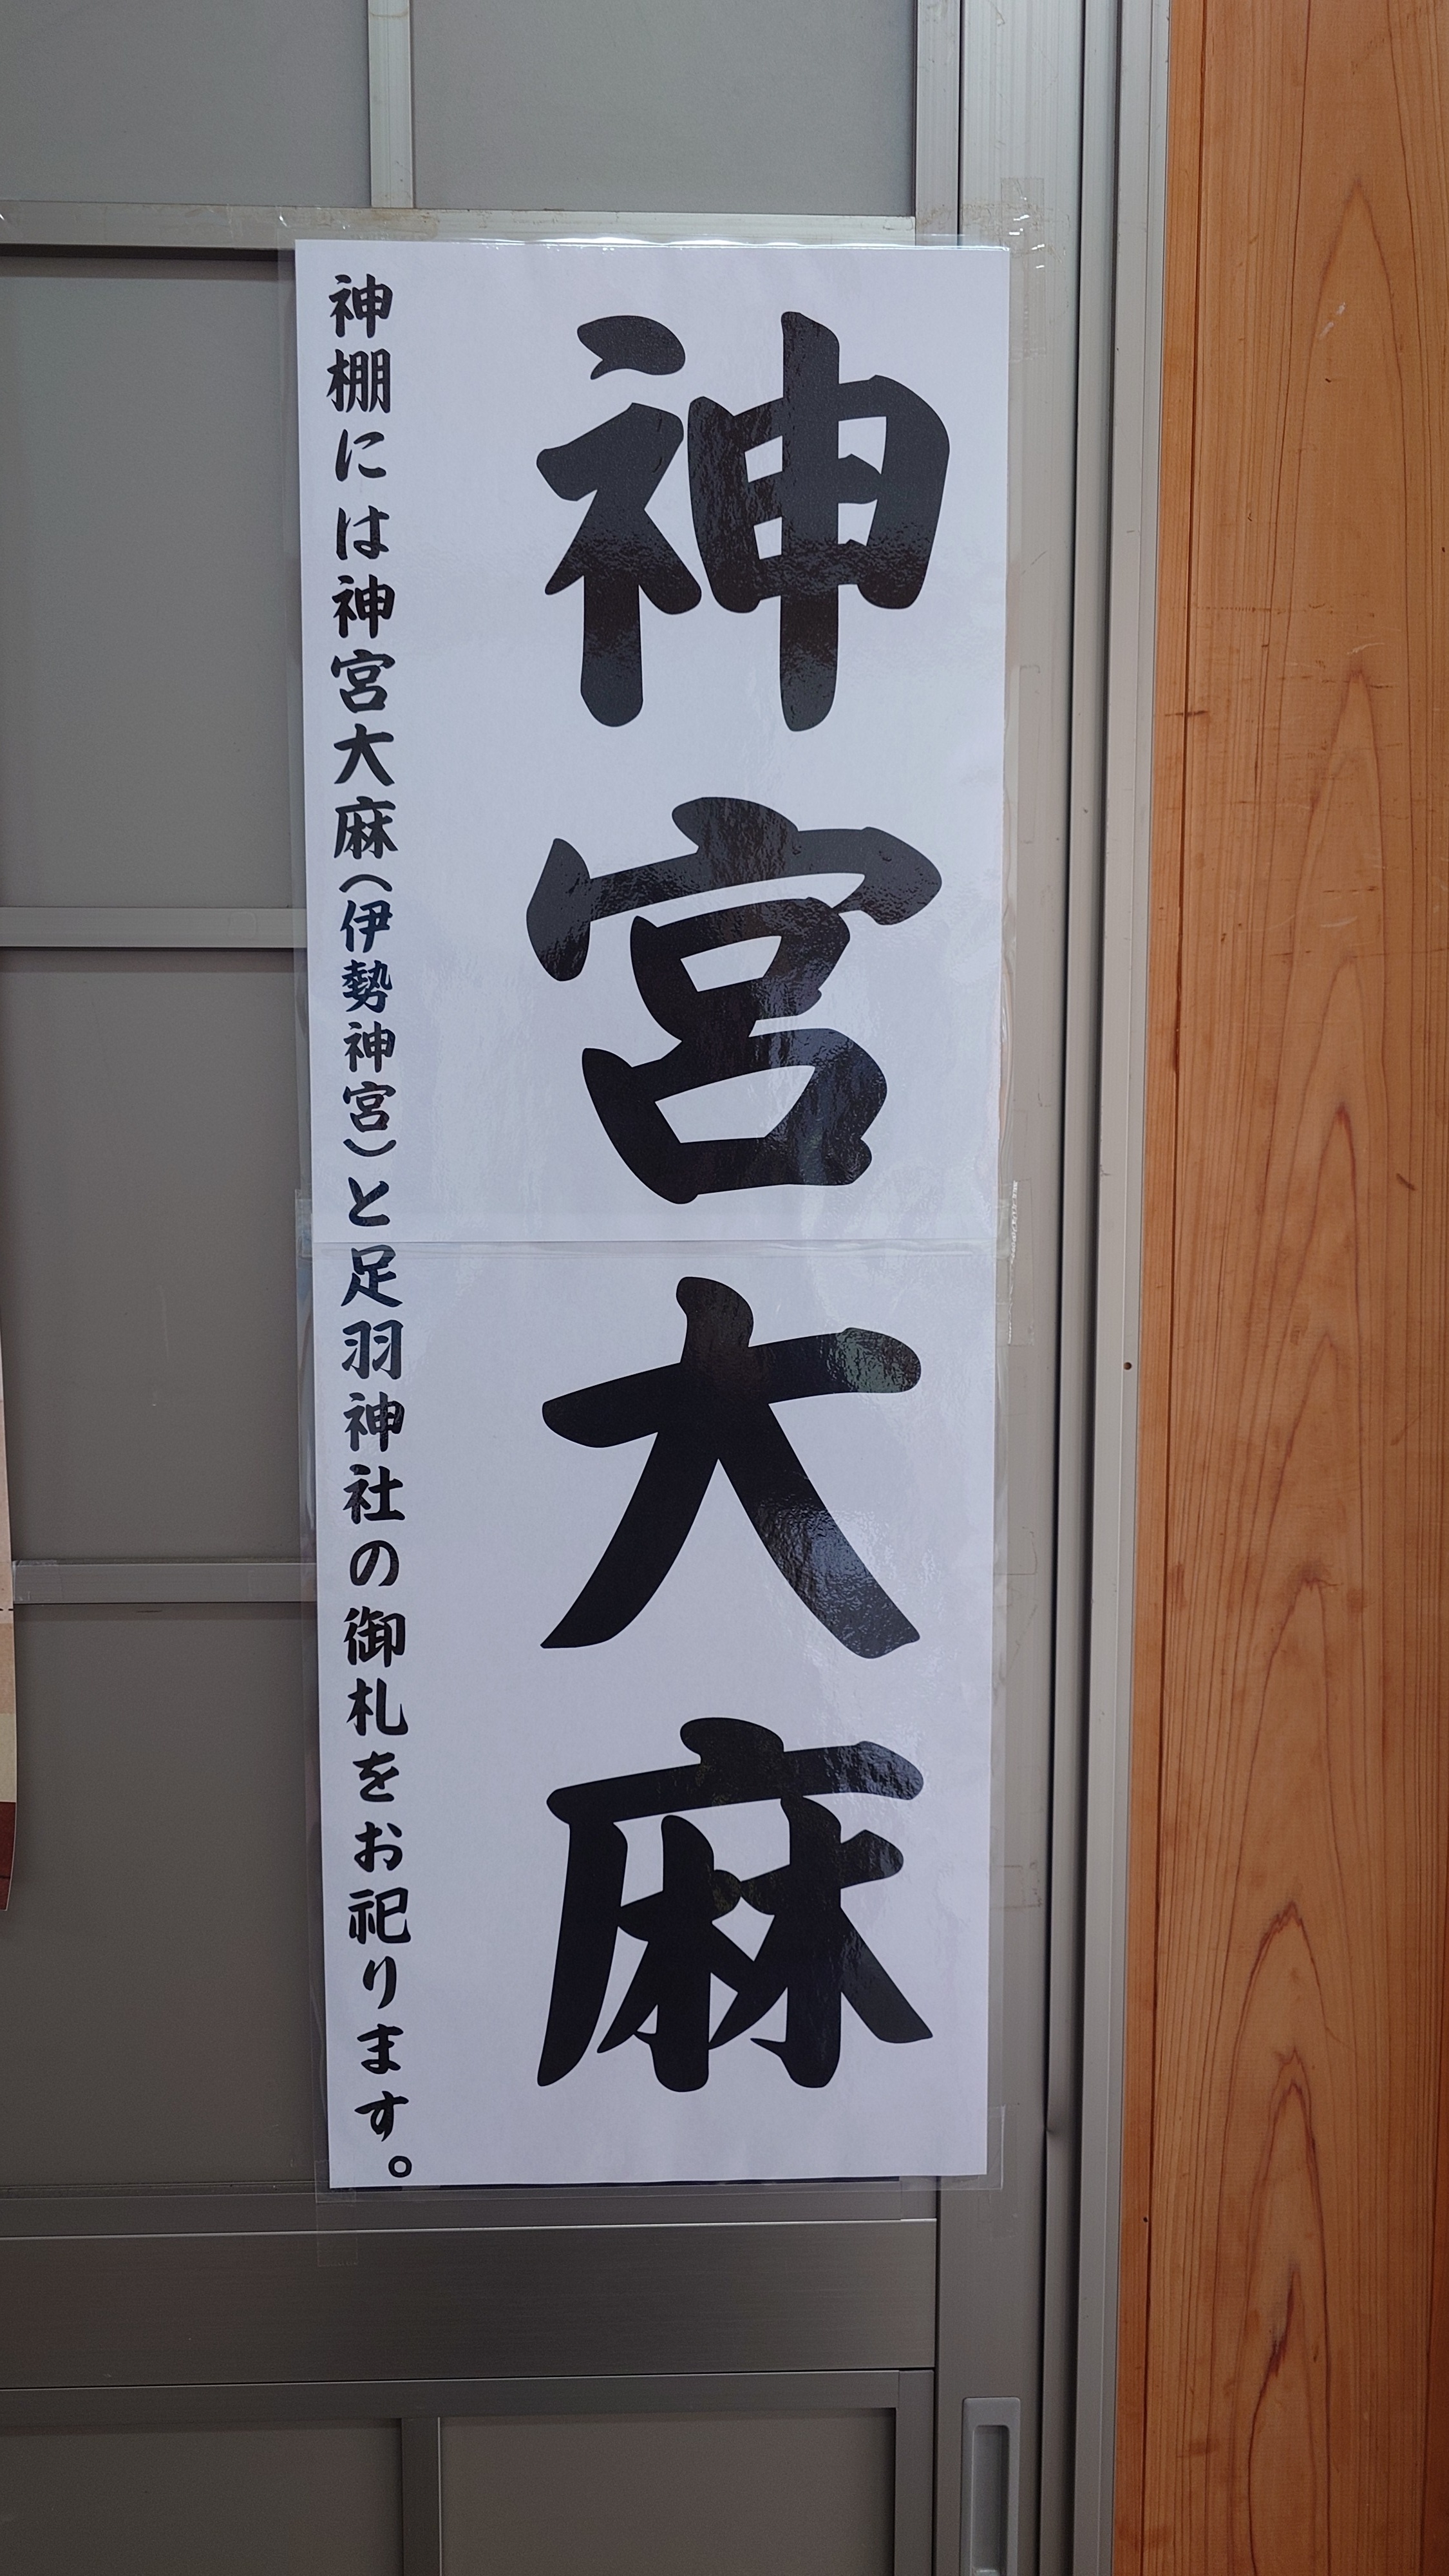 神宮大麻
神棚には神宮大麻(伊勢神宮)と足羽神社の御札をお祀ります。